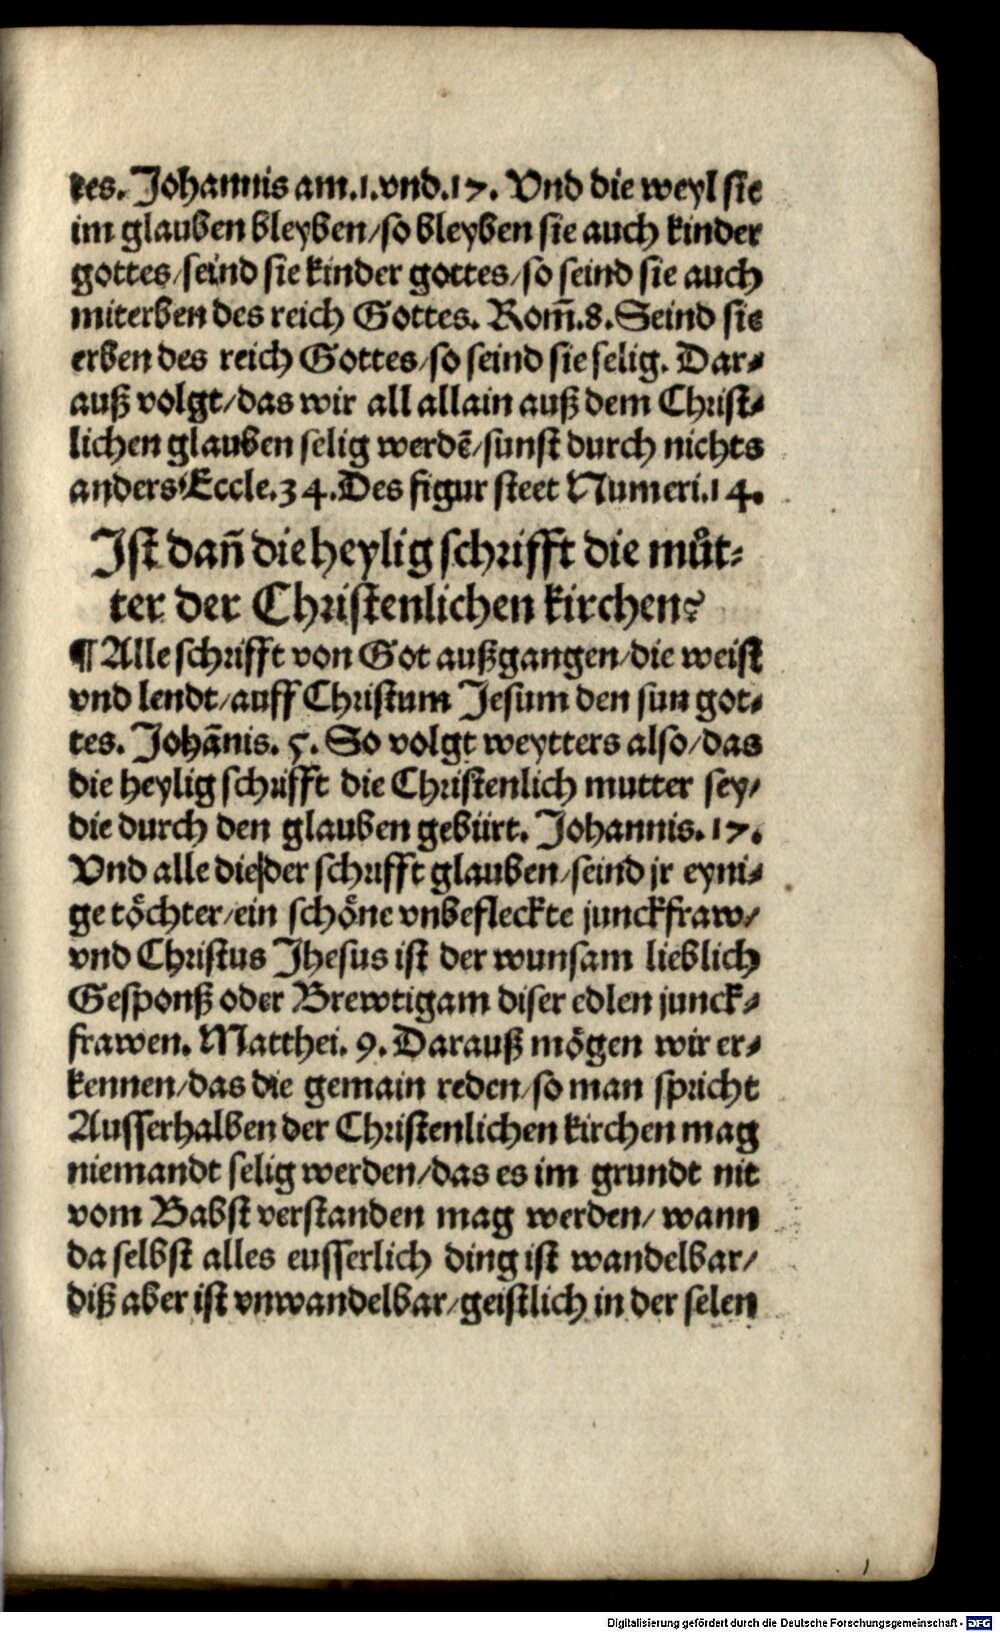 tes. Johannis am.1.vnd.17. Vnd die weyl sie
im glauben bleyben/so bleyben sie auch kinder
gottes/seind sie kinder gottes/so seind sie auch
miterben des reich Gottes. Rom̃.8. Seind sie
erben des reich Gottes/so seind sie selig. Dar⸗
auß volgt/das wir all allain auß dem Christ⸗
lichen glauben selig werdẽ/sunst durch nichts
anders/Eccle.34. Des figur steet Numeri.14.
Ist dañ die heylig schrifft die můt⸗
ter der Christenlichen kirchen?
¶ Alle schrifft von Got außgangen/die weist
vnd lendt/auff Christum Jesum den sun got⸗
tes. Johãnis. 5. So volgt weytters also/das
die heylig schrifft die Christenlich mutter sey/
die durch den glauben gebürt. Johannis.17.
Vnd alle die/der schrifft glauben/seind jr eyni⸗
ge toͤchter/ein schoͤne vnbefleckte junckfraw/
vnd Christus Jhesus ist der wunsam lieblich
Gesponß oder Brewtigam diser edlen junck⸗
frawen. Matthei. 9. Darauß moͤgen wir er⸗
kennen/das die gemain reden/so man spricht
Ausserhalben der Christenlichen kirchen mag
niemandt selig werden/das es im grundt nit
vom Babst verstanden mag werden/ wann
da selbst alles eusserlich ding ist wandelbar/
diß aber ist vnwandelbar/geistlich in der selen
Digitalisierung gefördert durch die Deutsche Forschungsgemeinschaft - DFG